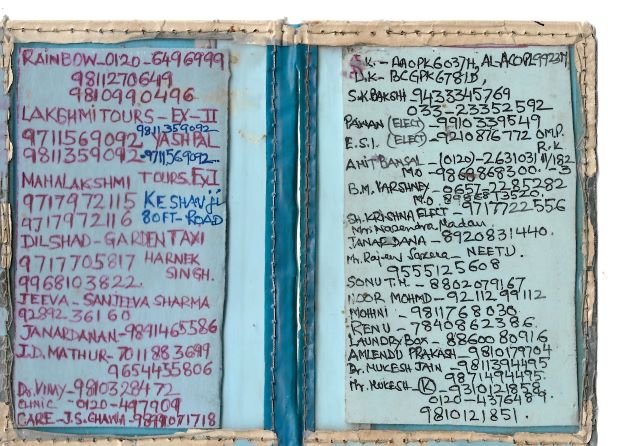 RAINBOW-0120-6496999
9811270649
9810990496
LAKSHMI TOURS - EX-II
9811359092
9711569092 YASHPAL
9811359092 9711569092
MAHALAKSHMI TOURS EXI
9717972115 KESHAVji
9717972116 80FT-ROAD
DILSHAD-GARDEN TAXI
9717705817 HARNEK
SINGH.
9968103822
JEEVA - SANJEEVA SHARMA
92892 36160
JANARDANAN-9891465586
J.D. MATHUR-7011883699
9654455806
Dr. VINAY-9810328472
CLINIC - 0120-497909
CARE - J.S. CHAWLA -9891071718
S.K.- AAOPK6037H,
D.K- BCGPK6781D,
S.K BAKSHI - 9433345769
033-23352592
PAWAN (ELECT) - 9910339549
E.S.I. (ELECT) - 9210876772 OM.P.
R.K
AMIT BANSAL -(0120)-2631031
MO - 9868868300
B.M. VARSHNEY - 0657-2285282
M.O.
SH. KRISHNA ELECT - 9717722556
Mrs. Nagendra Madan.
JANARDANA - 8920831440.
Mr. Rajeev Saxena - NEETU.
9555125608
SONU T.H. - 8802079167
NOOR MOHMD - 9211299112
MOHNI - 9811768030
RENU - 7840862386.
LAUNDRY BOX - 8860080916
AMLENDU PRAKASH - 9810179704
Dr. MUKESH JAIN - 9811394495
9871494495
Mr. MUKESH (K) - 9310121858
0120-4376489
9810121851.